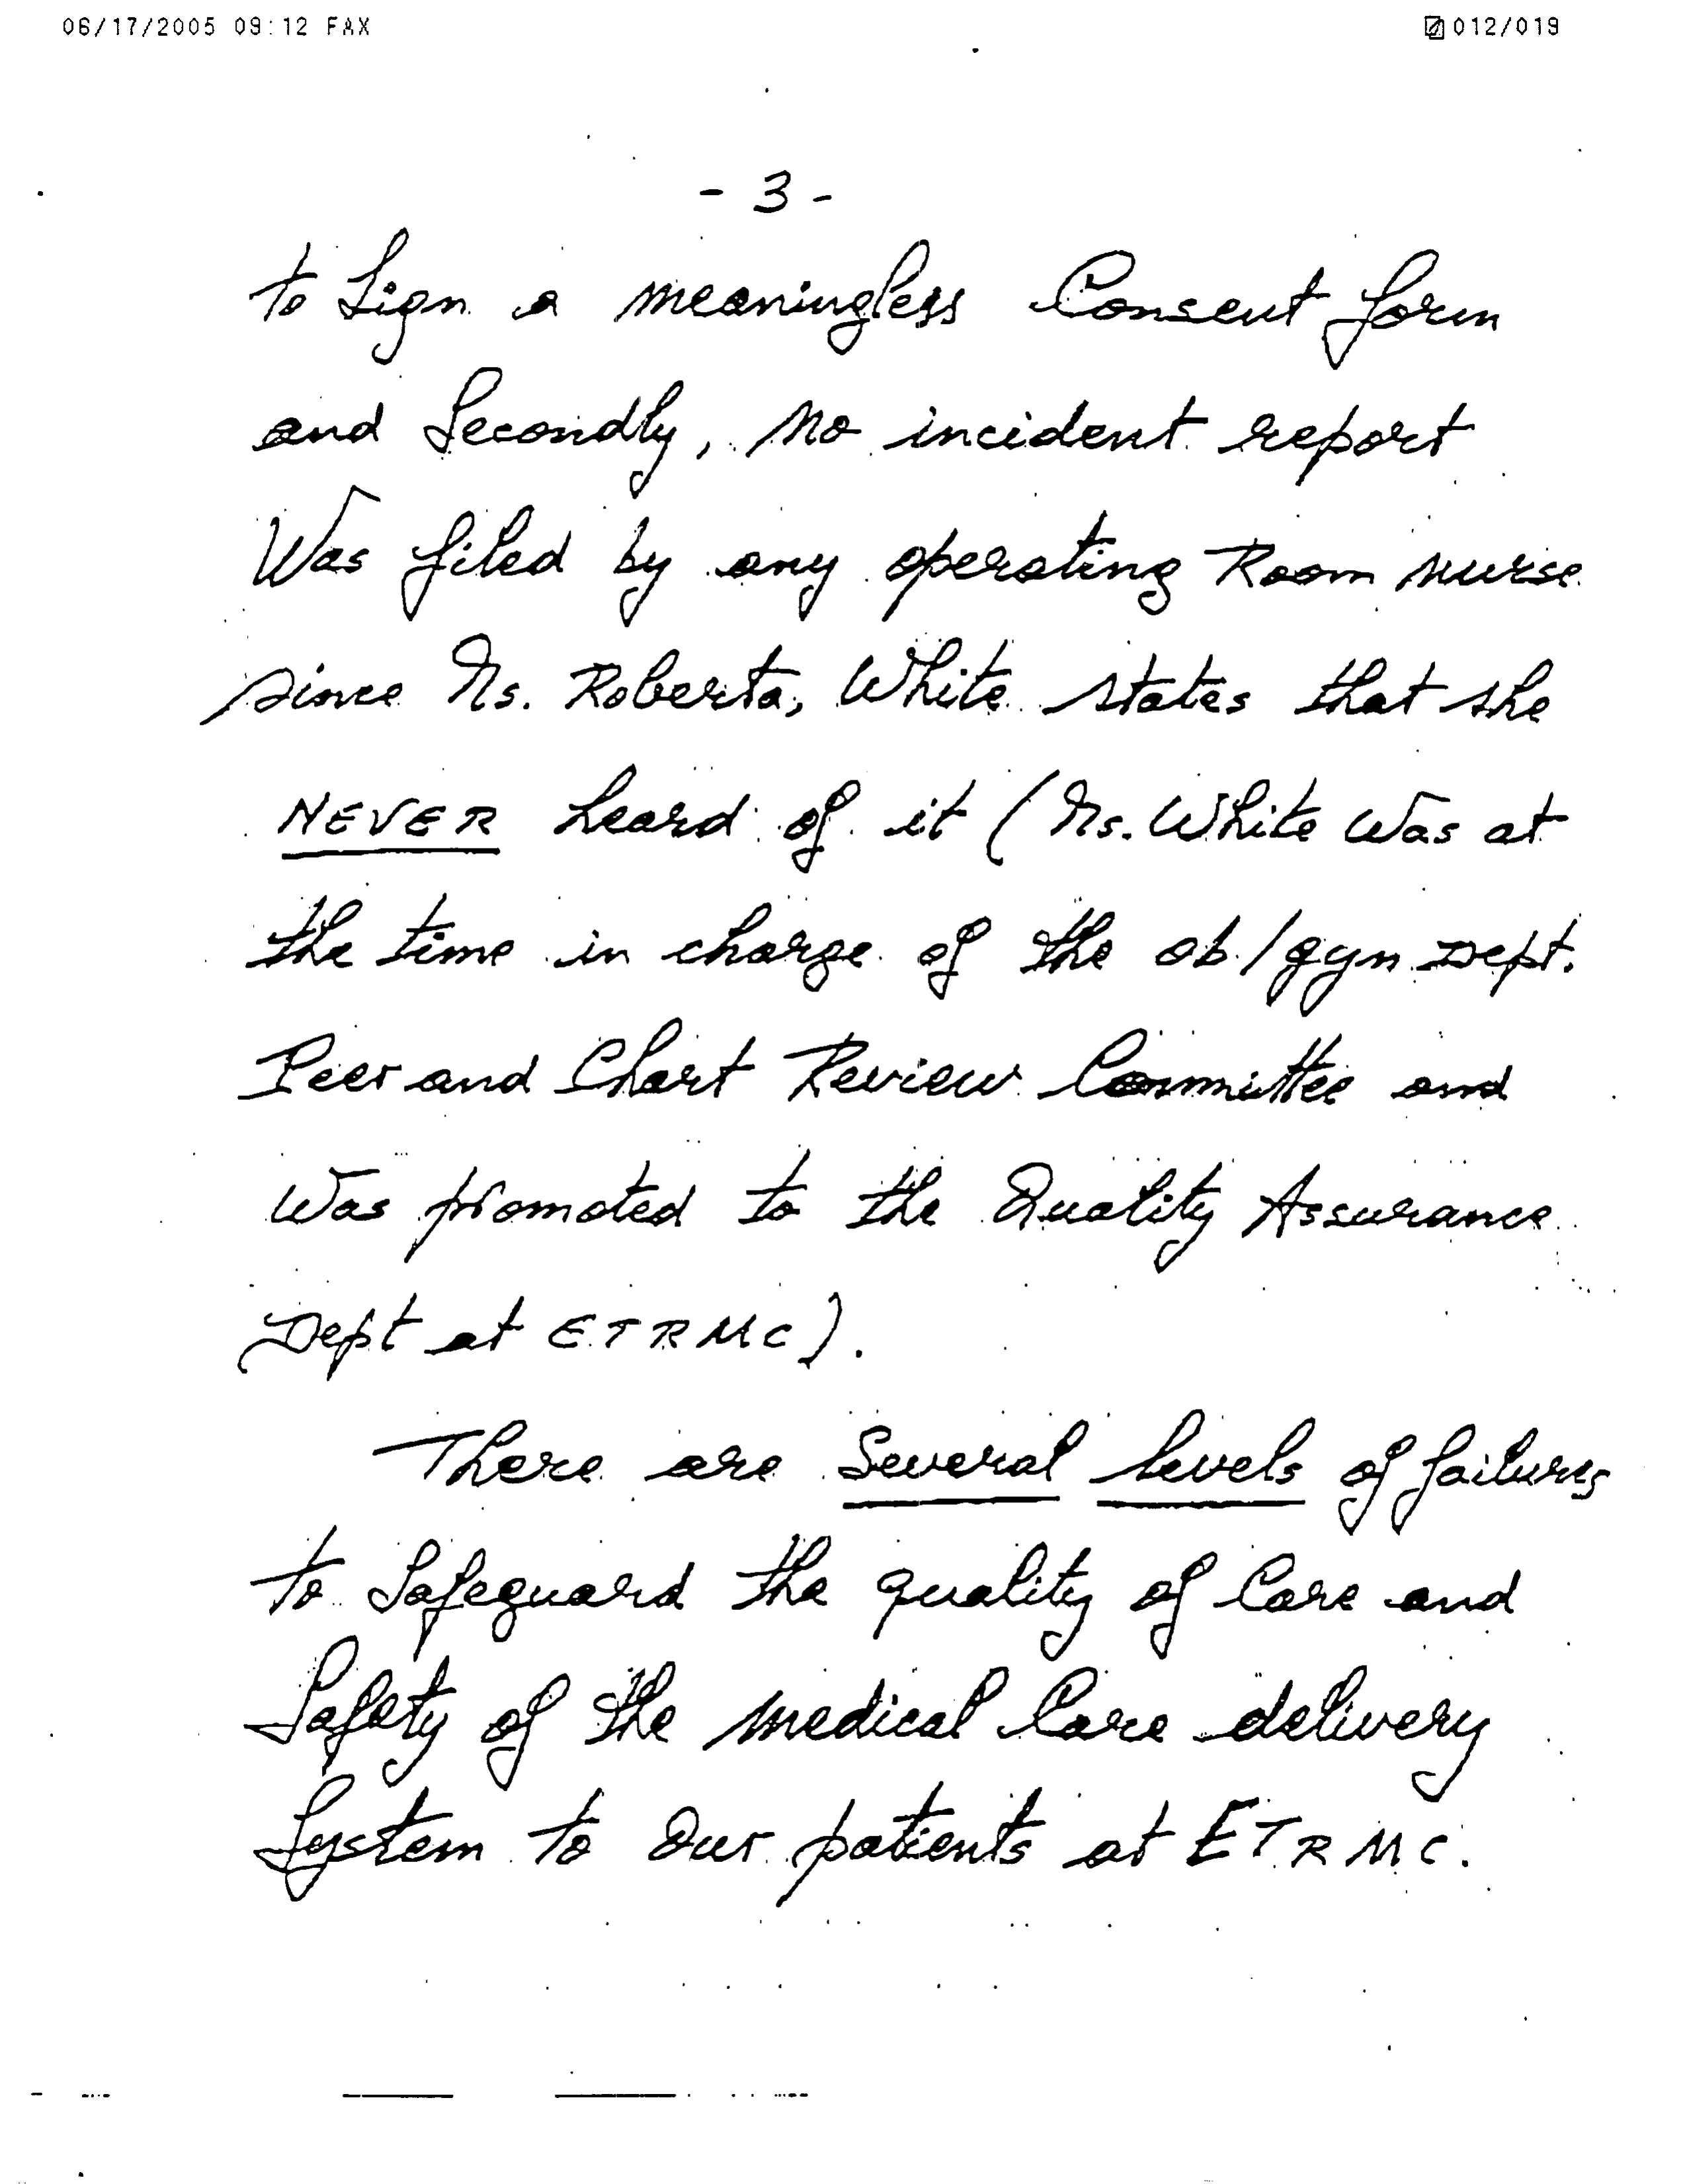 06/17/2005 09:12 FAX 012/019
- 3 -
to Sign a meaningless Consent form
and Secondly, No incident report
Was filed by any operating Room nurse
since Ms. Roberta, White states that she
NEVER heard of it (Ms. White Was at
the time in charge of the ob/gyn Dept.
Peer and Chart Review Committee and
Was promoted to the Quality Assurance
Dept at ETRMC).
There are Several levels of failures
to Safeguard the quality of Care and
Safety of the medical Care delivery
System to Our patients at ETRMC.